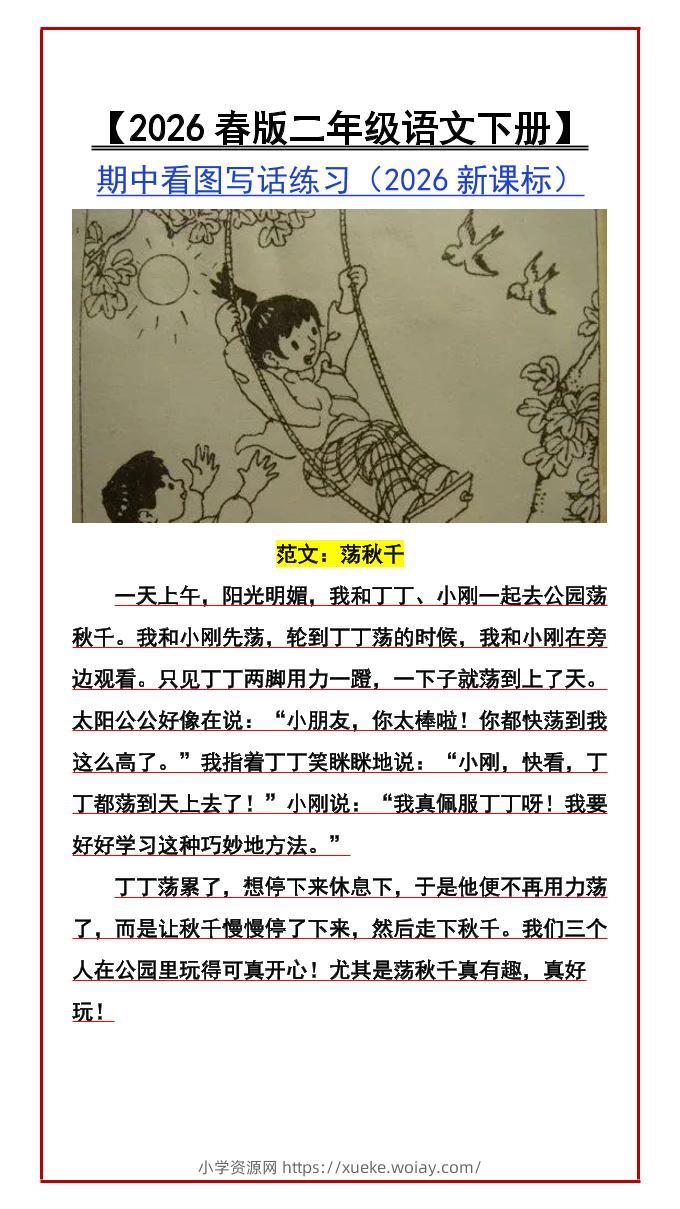 【2026 春版二年级语文下册】
期中看图写话练习（2026 新课标）
范文：荡秋千
一天上午，阳光明媚，我和丁丁、小刚一起去公园荡
秋千。我和小刚先荡，轮到丁丁荡的时候，我和小刚在旁
边观看。只见丁丁两脚用力一蹬，一下子就荡到上了天。
太阳公公好像在说：“小朋友，你太棒啦！你都快荡到我
这么高了。”我指着丁丁笑眯眯地说：“小刚，快看，丁
丁都荡到天上去了！”小刚说：“我真佩服丁丁呀！我要
好好学习这种巧妙地方法。”
丁丁荡累了，想停下来休息下，于是他便不再用力荡
了，而是让秋千慢慢停了下来，然后走下秋千。我们三个
人在公园里玩得可真开心！尤其是荡秋千真有趣，真好
玩！
小学资源网 https://xueke.woiay.com/